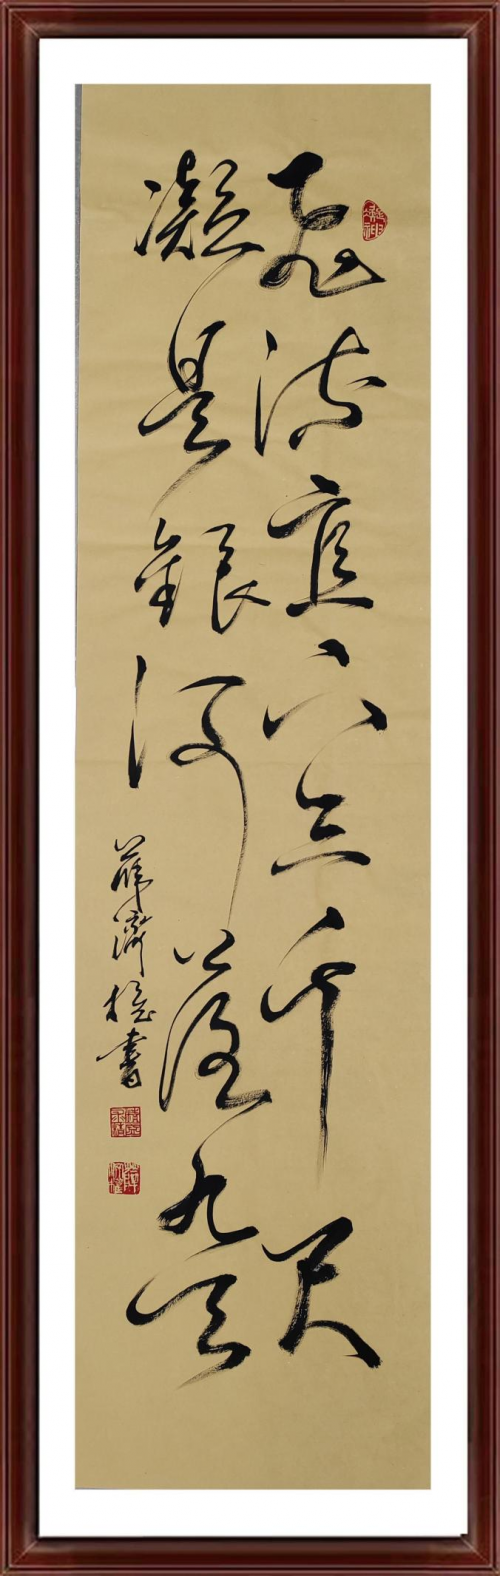 飛流直下三千尺
凝是銀河落九天
薛濟書